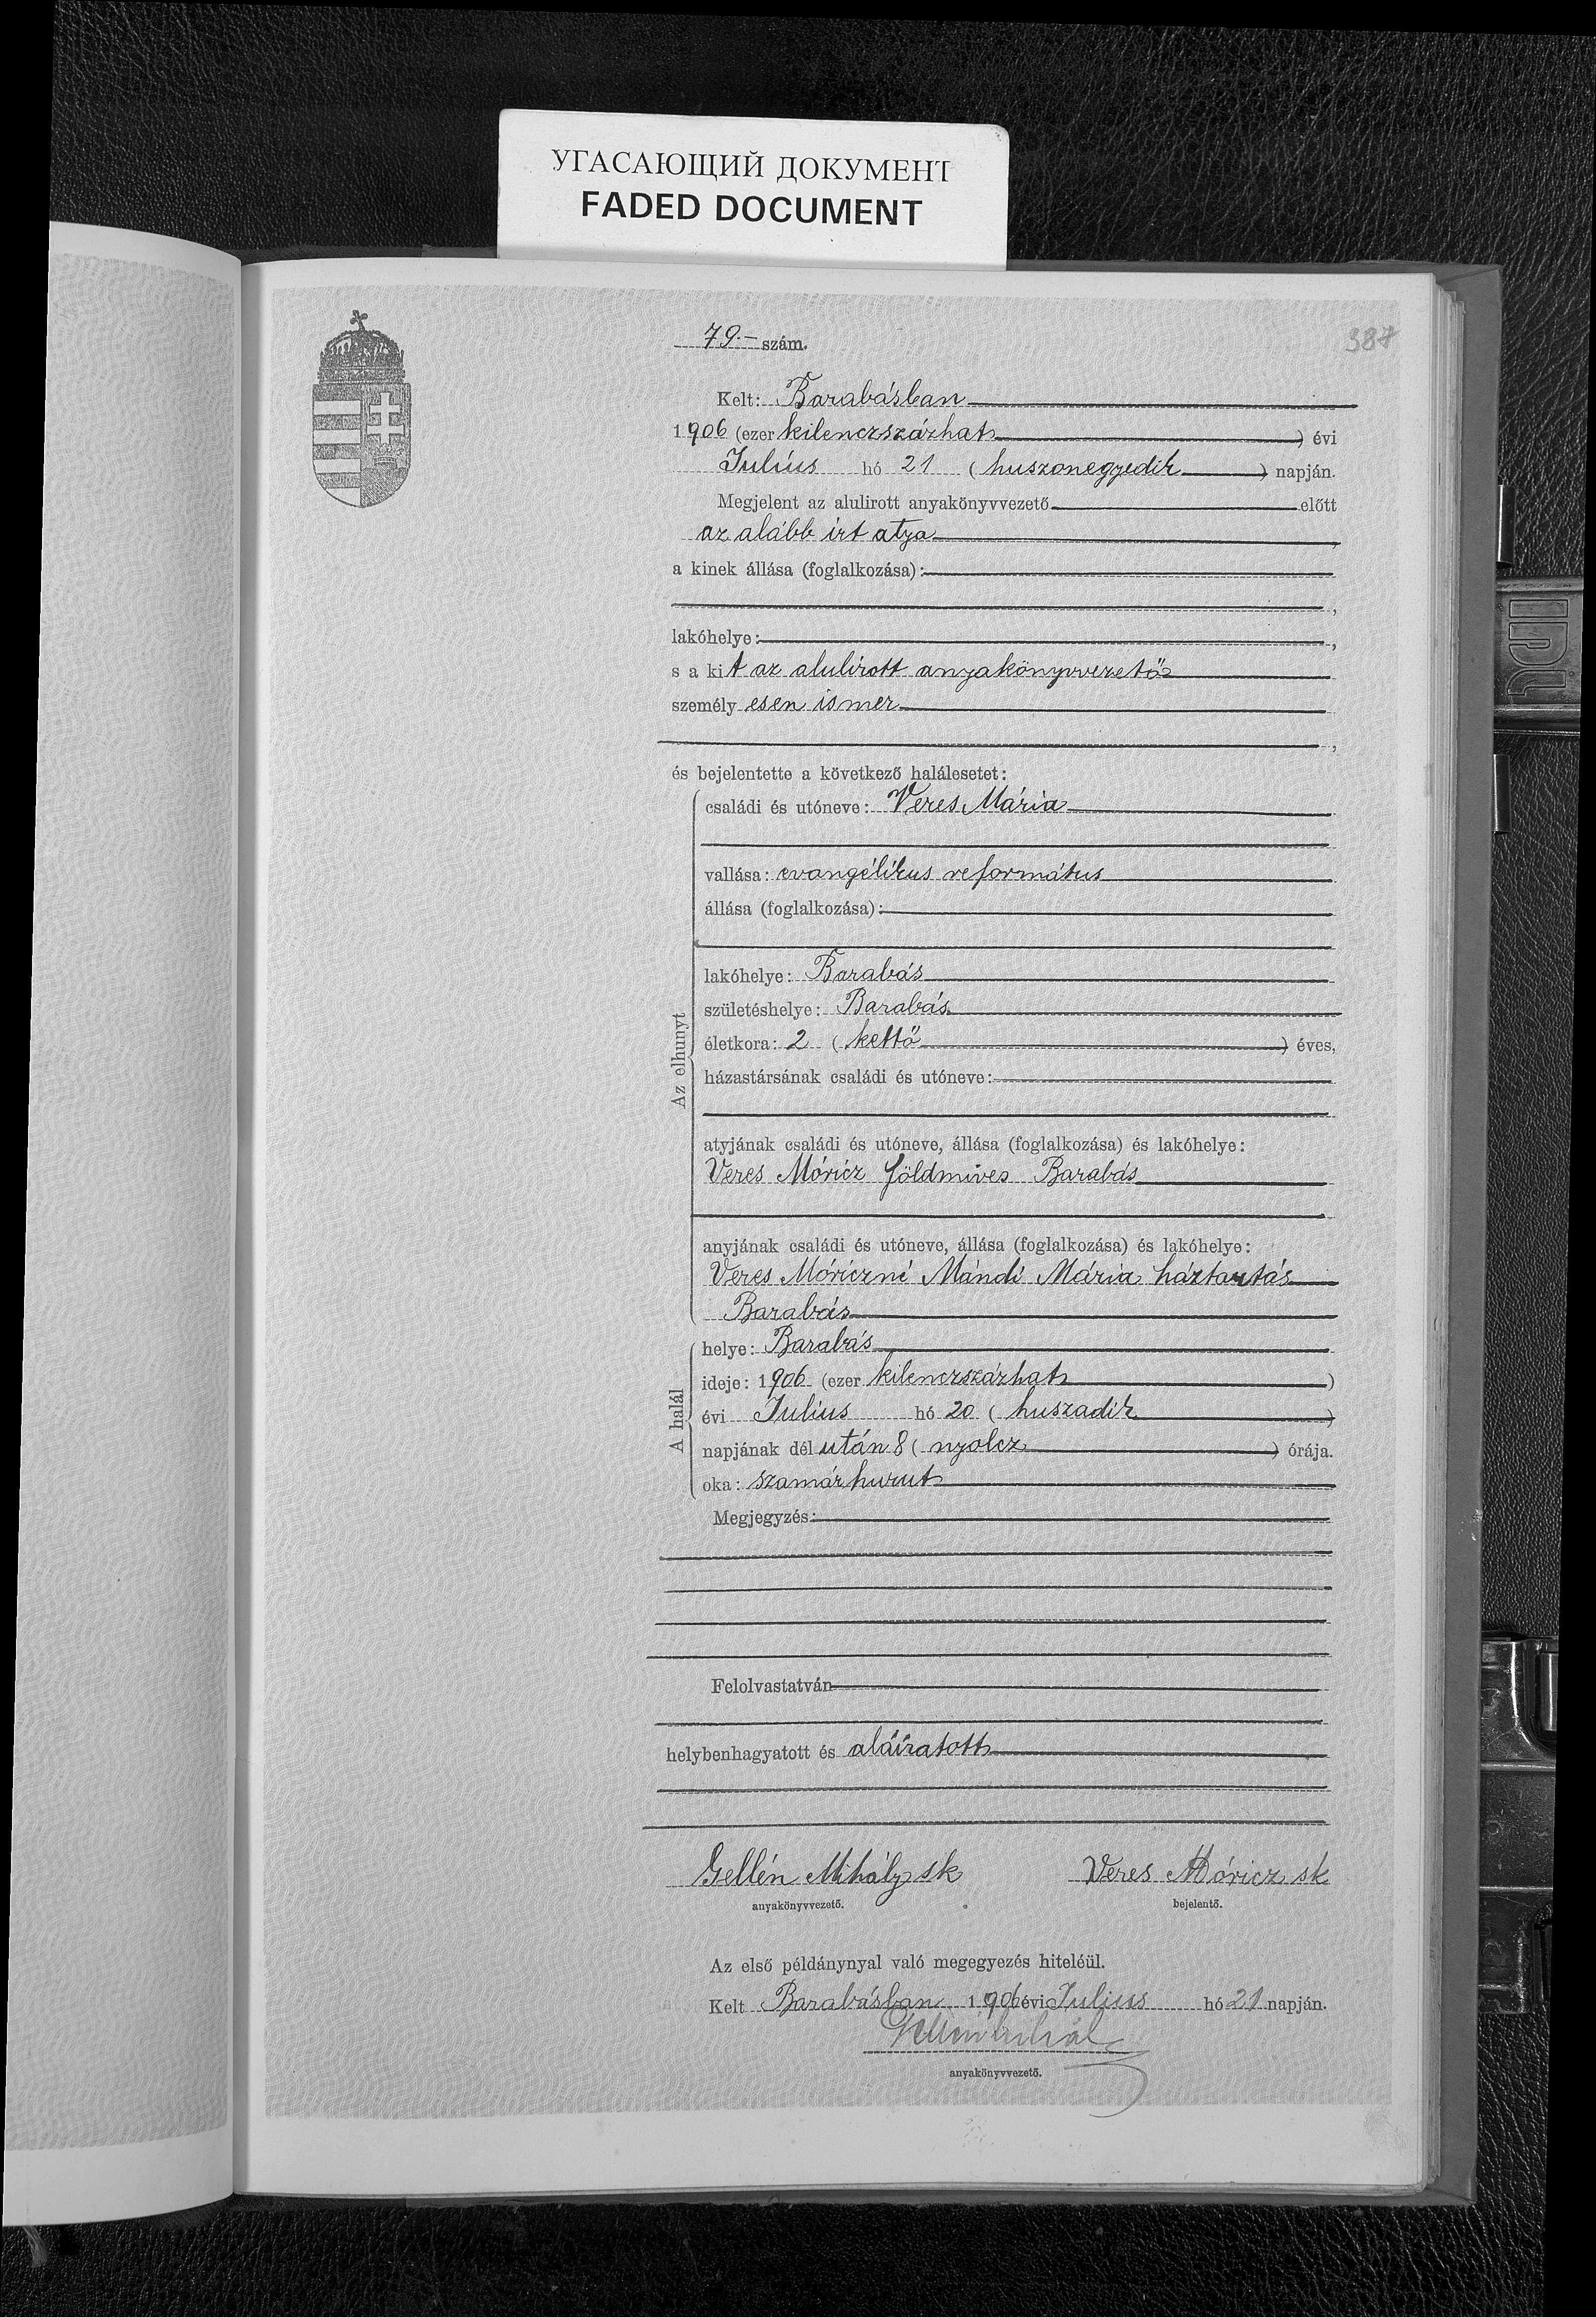 УГАСАЮЩИЙ ДОКУМЕНТ
FADED DOCUMENT
79.- szám.
387
Kelt: Barabásban
1906 (ezer kilenczszázhat) évi
Július hó 21 (huszonegyedik) napján.
Megjelent az alulirott anyakönyvvezető előtt
az alább irt atya,
a kinek állása (foglalkozása):
,
lakóhelye: ,
s a kit az alulirott anyakönyvvezető
személyesen ismer
,
és bejelentette a következő halálesetet:
Az elhunyt
családi és utóneve: Veres Mária
vallása: evangélikus református
állása (foglalkozása):
lakóhelye: Barabás
születéshelye: Barabás
életkora: 2 (kettő) éves,
házastársának családi és utóneve:
atyjának családi és utóneve, állása (foglalkozása) és lakóhelye:
Veres Móricz földmives Barabás
anyjának családi és utóneve, állása (foglalkozása) és lakóhelye:
Veres Móriczné Mándi Mária háztartás
Barabás
A halál
helye: Barabás
ideje: 1906 (ezer kilenczszázhat)
évi Julius hó 20 (huszadik)
napjának dél után 8 (nyolcz) órája.
oka: szamárhurut
Megjegyzés:
Felolvastatván
helybenhagyatott és aláíratott
Gellén Mihály sk Veres Móricz sk
anyakönyvvezető. bejelentő.
Az első példánynyal való megegyezés hiteléül.
Kelt Barabásban 1906 évi Julius hó 21 napján.
Gellén Mihály
anyakönyvvezető.